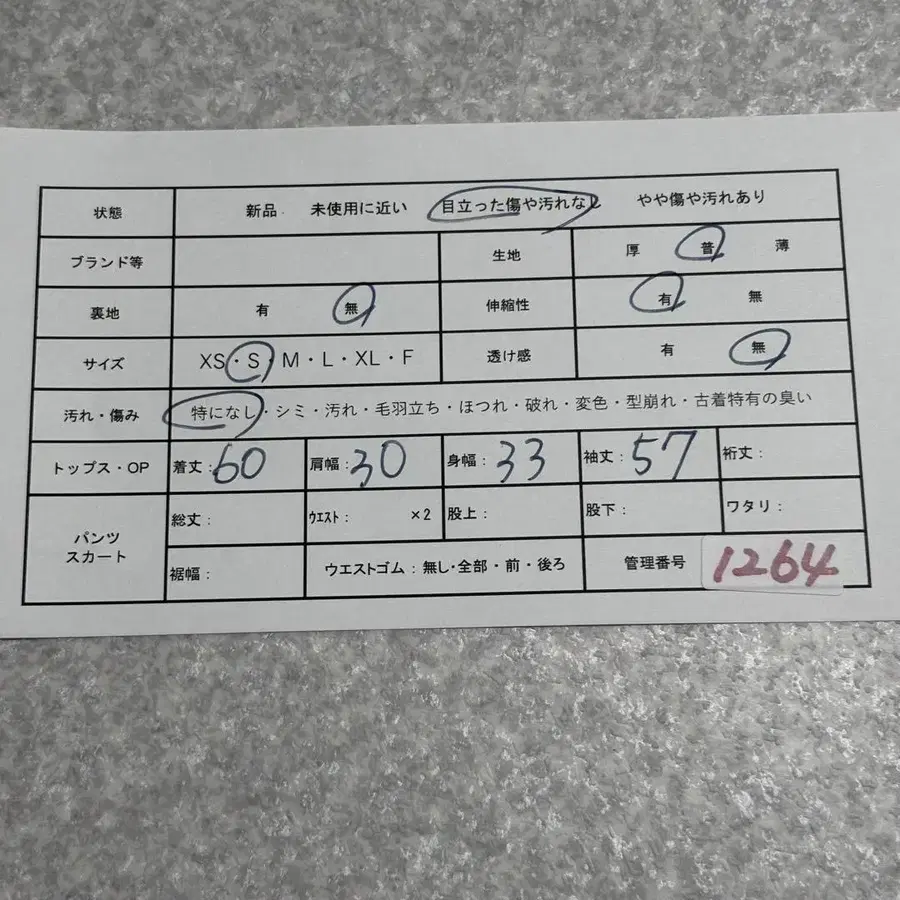 状態 新品 未使用に近い 目立った傷や汚れなし やや傷や汚れあり
ブランド等 生地 厚 普 薄
裏地 有 無 伸縮性 有 無
サイズ XS・S・M・L・XL・F 透け感 有 無
汚れ・傷み 特になし・シミ・汚れ・毛羽立ち・ほつれ・破れ・変色・型崩れ・古着特有の臭い
トップス・OP 着丈:60 肩幅:30 身幅:33 袖丈:57 裄丈:
パンツ
スカート
総丈: ウエスト: ×2 股上: 股下: ワタリ:
裾幅: ウエストゴム:無し・全部・前・後ろ 管理番号 1264